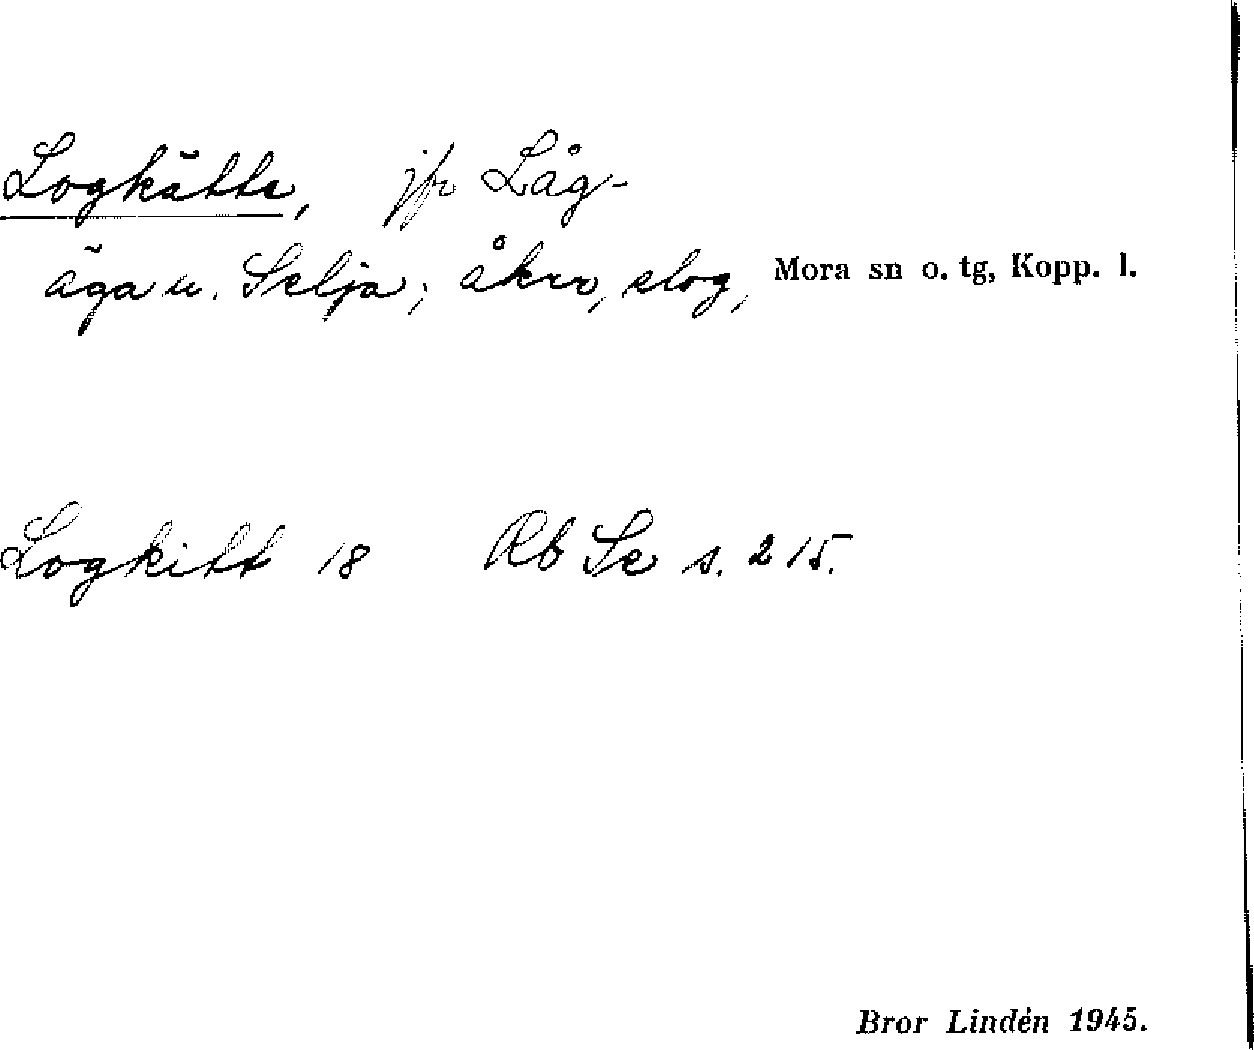 Logkätte, jfr Låg-
äga u. Selja; åkrr, slog, Mora sn o. tg, Kopp. l.
Logkitt 18 Rb Se s. 215.
Bror Lindén 1945.